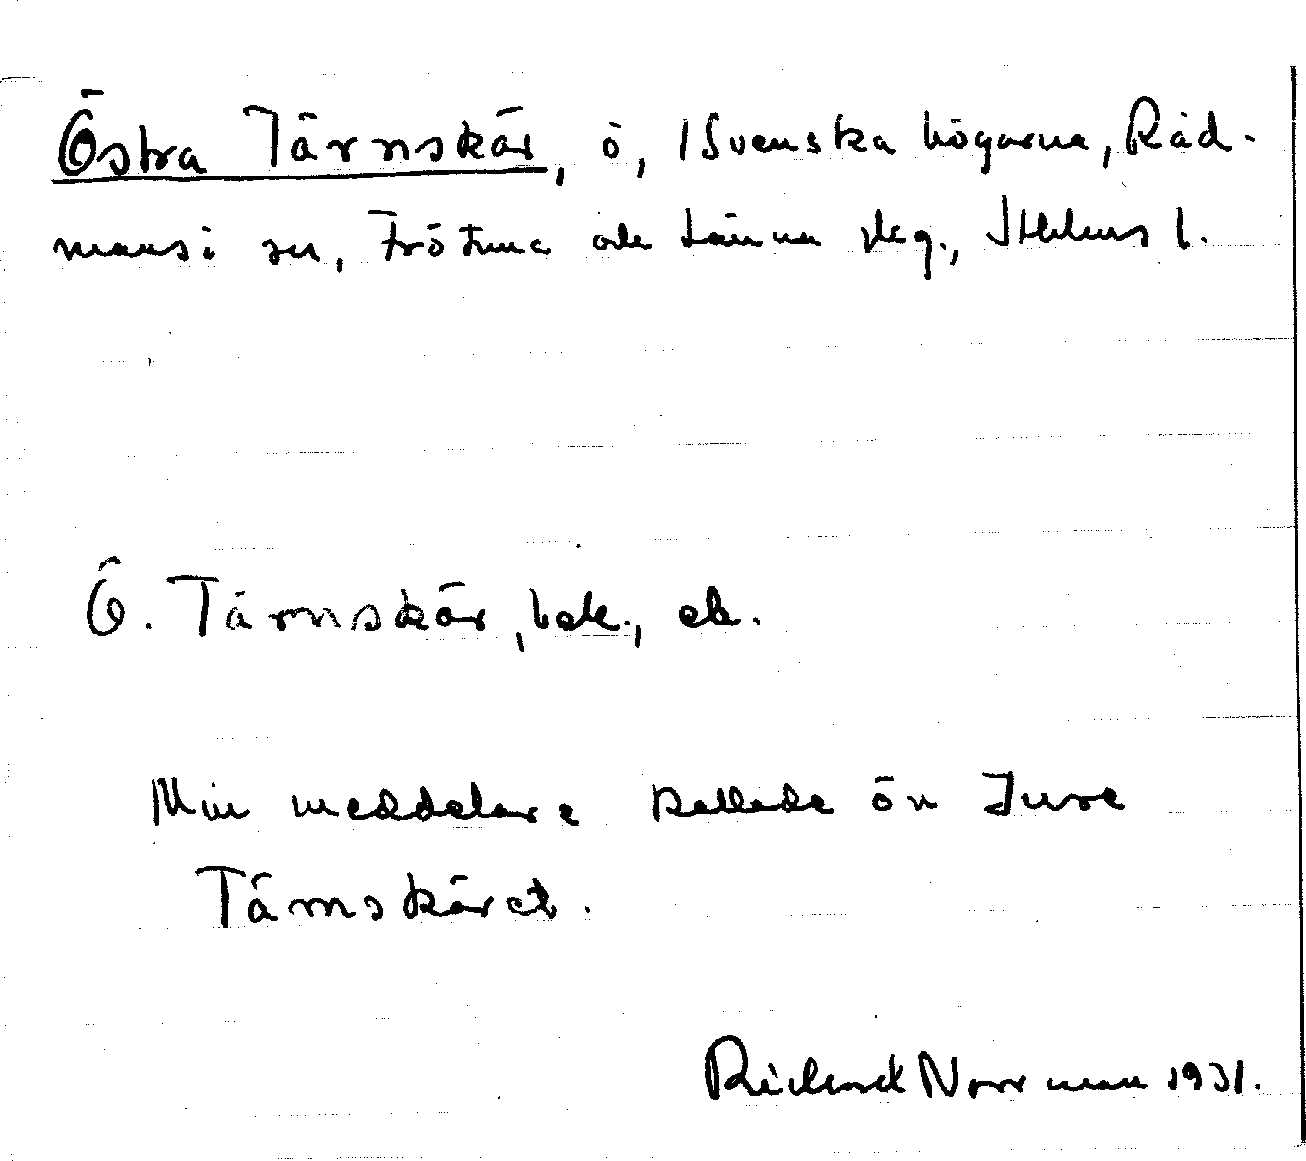 Östra Tärnskär, ö, i Svenska högarna, Råd-
mansö sn, Frötuna och Länna skg., Sthlms l.
Ö. Tärnskär, bok., ek.
Min meddelare kallade ön Inre
Tärnskäret.
Richard Norrman 1931.